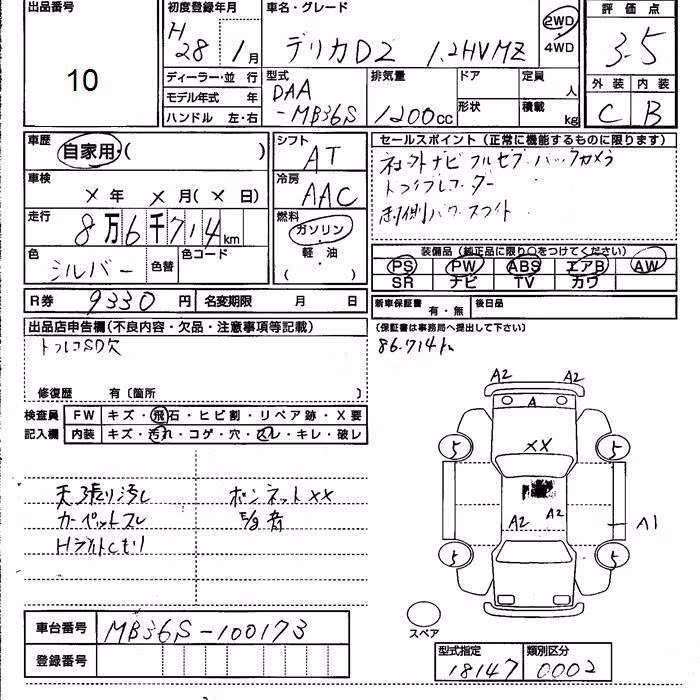 出品番号
10
初度登録年月
H28 1月
車名・グレード
デリカD2 1.2HVMZ
2WD
4WD
評価点
3.5
外装 内装
C B
ディーラー・並行
モデル年式 年
ハンドル 左・右
型式
DAA
-MB36S
排気量
1200cc
ドア
形状
定員 人
積載 kg
車歴
自家用・( )
車検
×年 ×月(×日)
走行
8万6千714km
色
シルバー
色替
色コード
シフト
AT
冷房
AAC
燃料
ガソリン・
軽・油
( )
セールスポイント (正常に機能するものに限ります)
社外ナビ フルセグ バックカメラ
ドライブレコーダー
両側パワースライド
装備品 (純正品に限り○をつけてください)
PS PW ABS エアB AW
SR ナビ TV カワ
R券 9330円
名変期限 月 日
新車保証書 有・無
後日品
(保証書は事務局へ提出して下さい)
出品店申告欄(不良内容・欠品・注意事項等記載)
ドラレコSD欠
修復歴 有〔箇所 〕
86.714km
検査員 FW キズ・飛石・ヒビ割・リペア跡・X要
記入欄 内装 キズ・汚れ・コゲ・穴・スレ・キレ・破レ
天張り汚れ
カーペットスレ
Hライトくもり
ボンネットXX
A2 A2
A
5 5
XX
A2 A2
A1
5 5
スペア
車台番号 MB36S-100173
登録番号
型式指定 類別区分
18147 0002